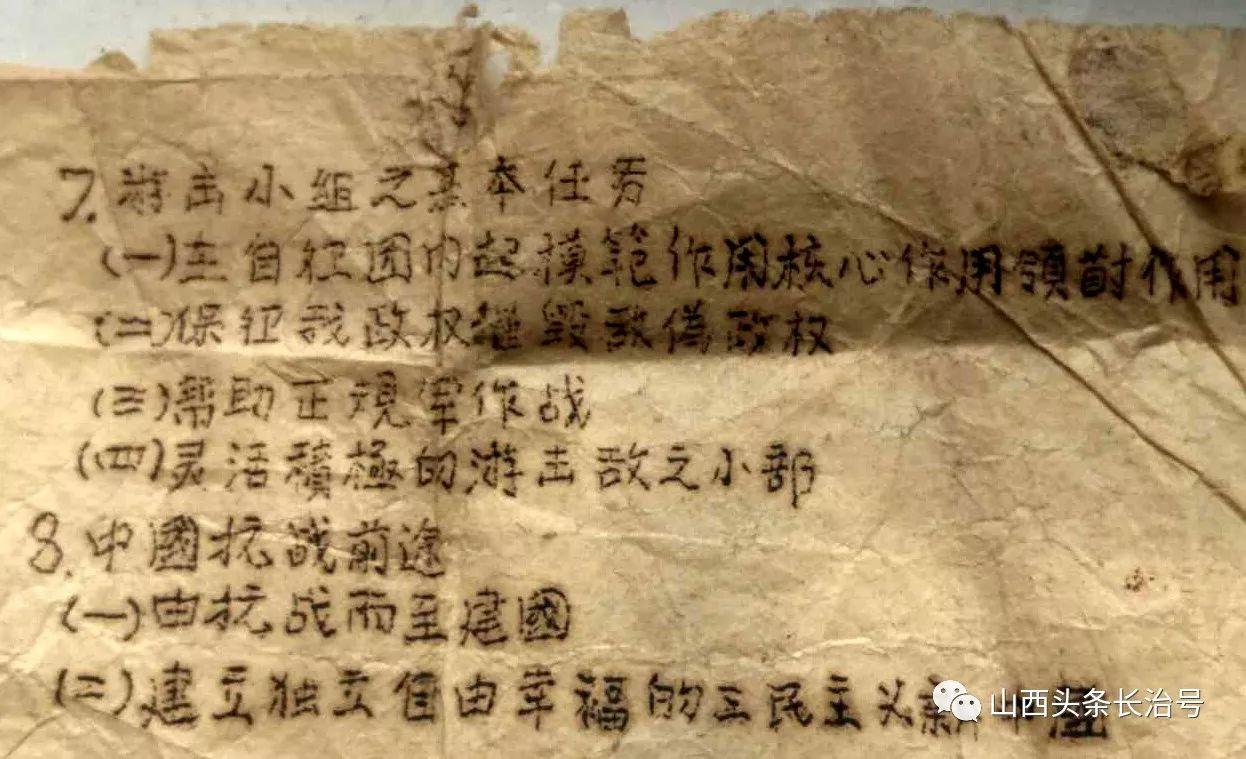 7.游击小组之基本任务
(一)在自卫团内起模范作用核心作用領導作用
(二)保证我政权摧毀敌偽政权
(三)幫助正規軍作战
(四)灵活積極的游击敌之小部
8.中國抗战前途
(一)由抗战而至建國
(二)建立独立自由幸福的三民主义新中國
山西头条长治号